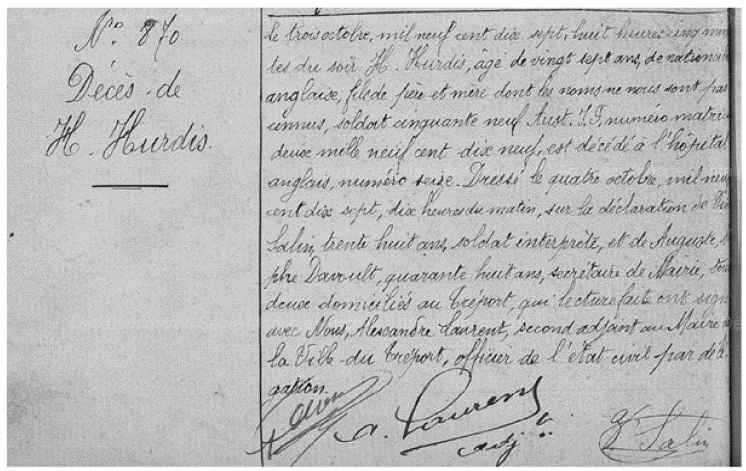 No. 870
Décès de
H. Hurdis.
Le trois octobre, mil neuf cent dix sept, huit heures cinq minu
tes du soir H. Hurdis, âgé de vingt sept ans, de nationali
anglaise, fils de père et mère dont les noms ne nous sont pas
connus, soldat cinquante neuf Aust. I. F, numéro matricu
deux mille neuf cent dix neuf, est décédé à l'hôpital
anglais, numéro seize. Dressé le quatre octobre, mil neuf
cent dix sept, dix heures du matin, sur la déclaration de
Salin, trente huit ans, soldat interprète, et de Auguste,
phe Davoult, quarante huit ans, secrétaire de Mairie, tous
deux domiciliés au Tréport, qui lecture faite ont sign
avec Nous, Alexandre Laurent, second adjoint au Maire de
la Ville du Tréport, officier de l'état civil par délé
gation.
A. Laurent
adj
Salin